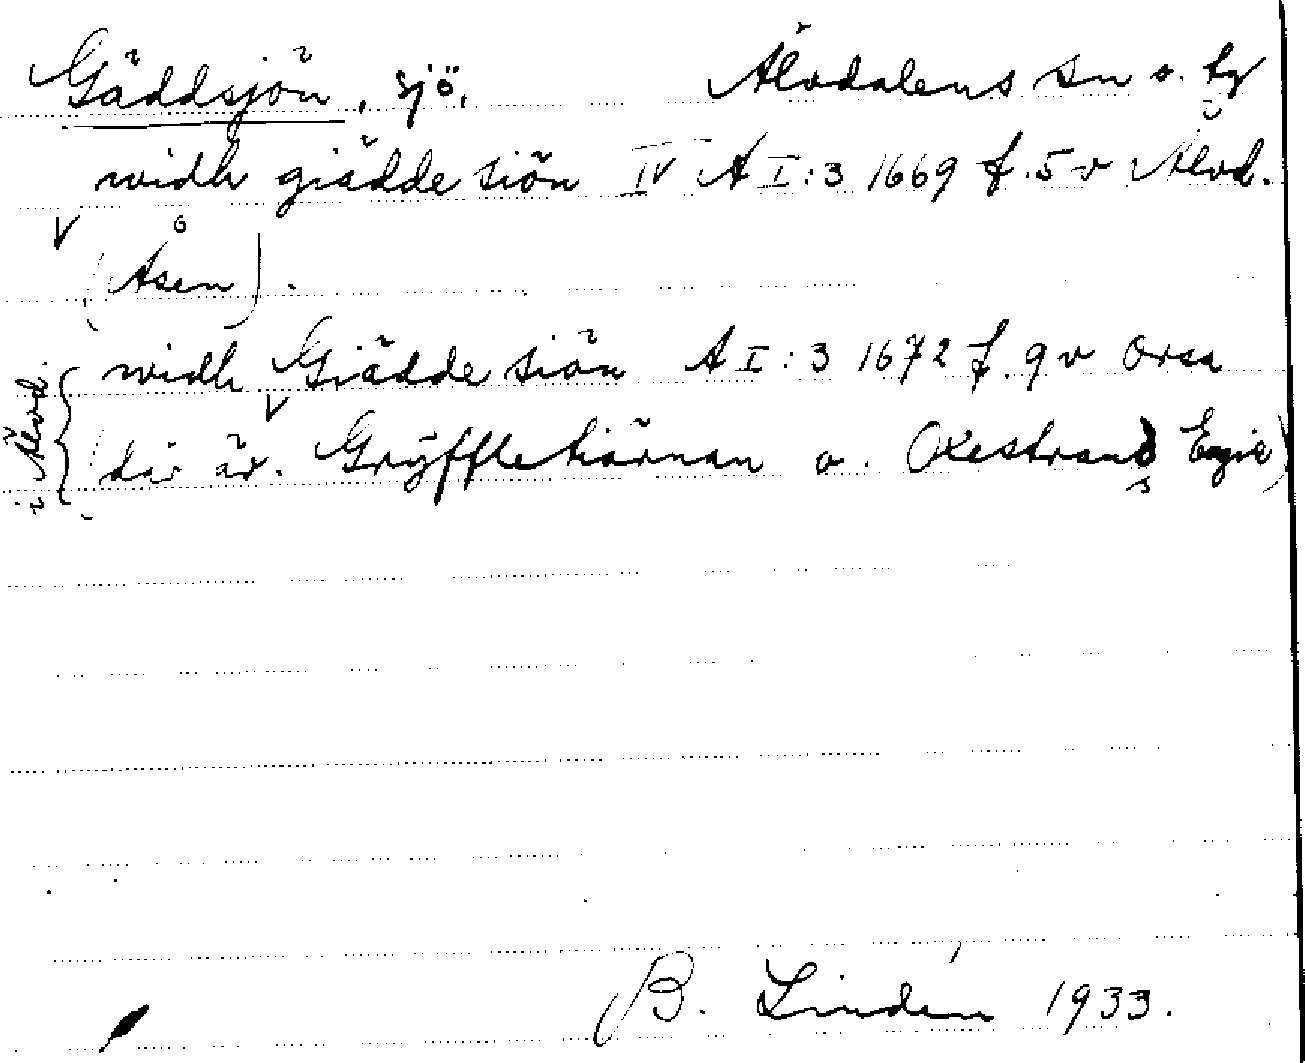 Gäddsjön, sjö, Älvdalens sn o. tg
widh giädde siön IV A I:3 1669 f. 5 v Älvd.
(Åsen).
widh Giädde siön A I:3 1672 f. 9 v Orsa
(där är. Gryffletiärnan o. Okestrands Engie)
i Älvd.
B. Lindén 1933.